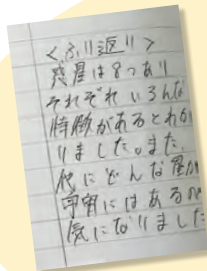 <ふり返り>
惑星は8つあり
それぞれいろんな
特徴があるとわか
りました。また、
他にどんな星が
宇宙にはあるの
気になりました